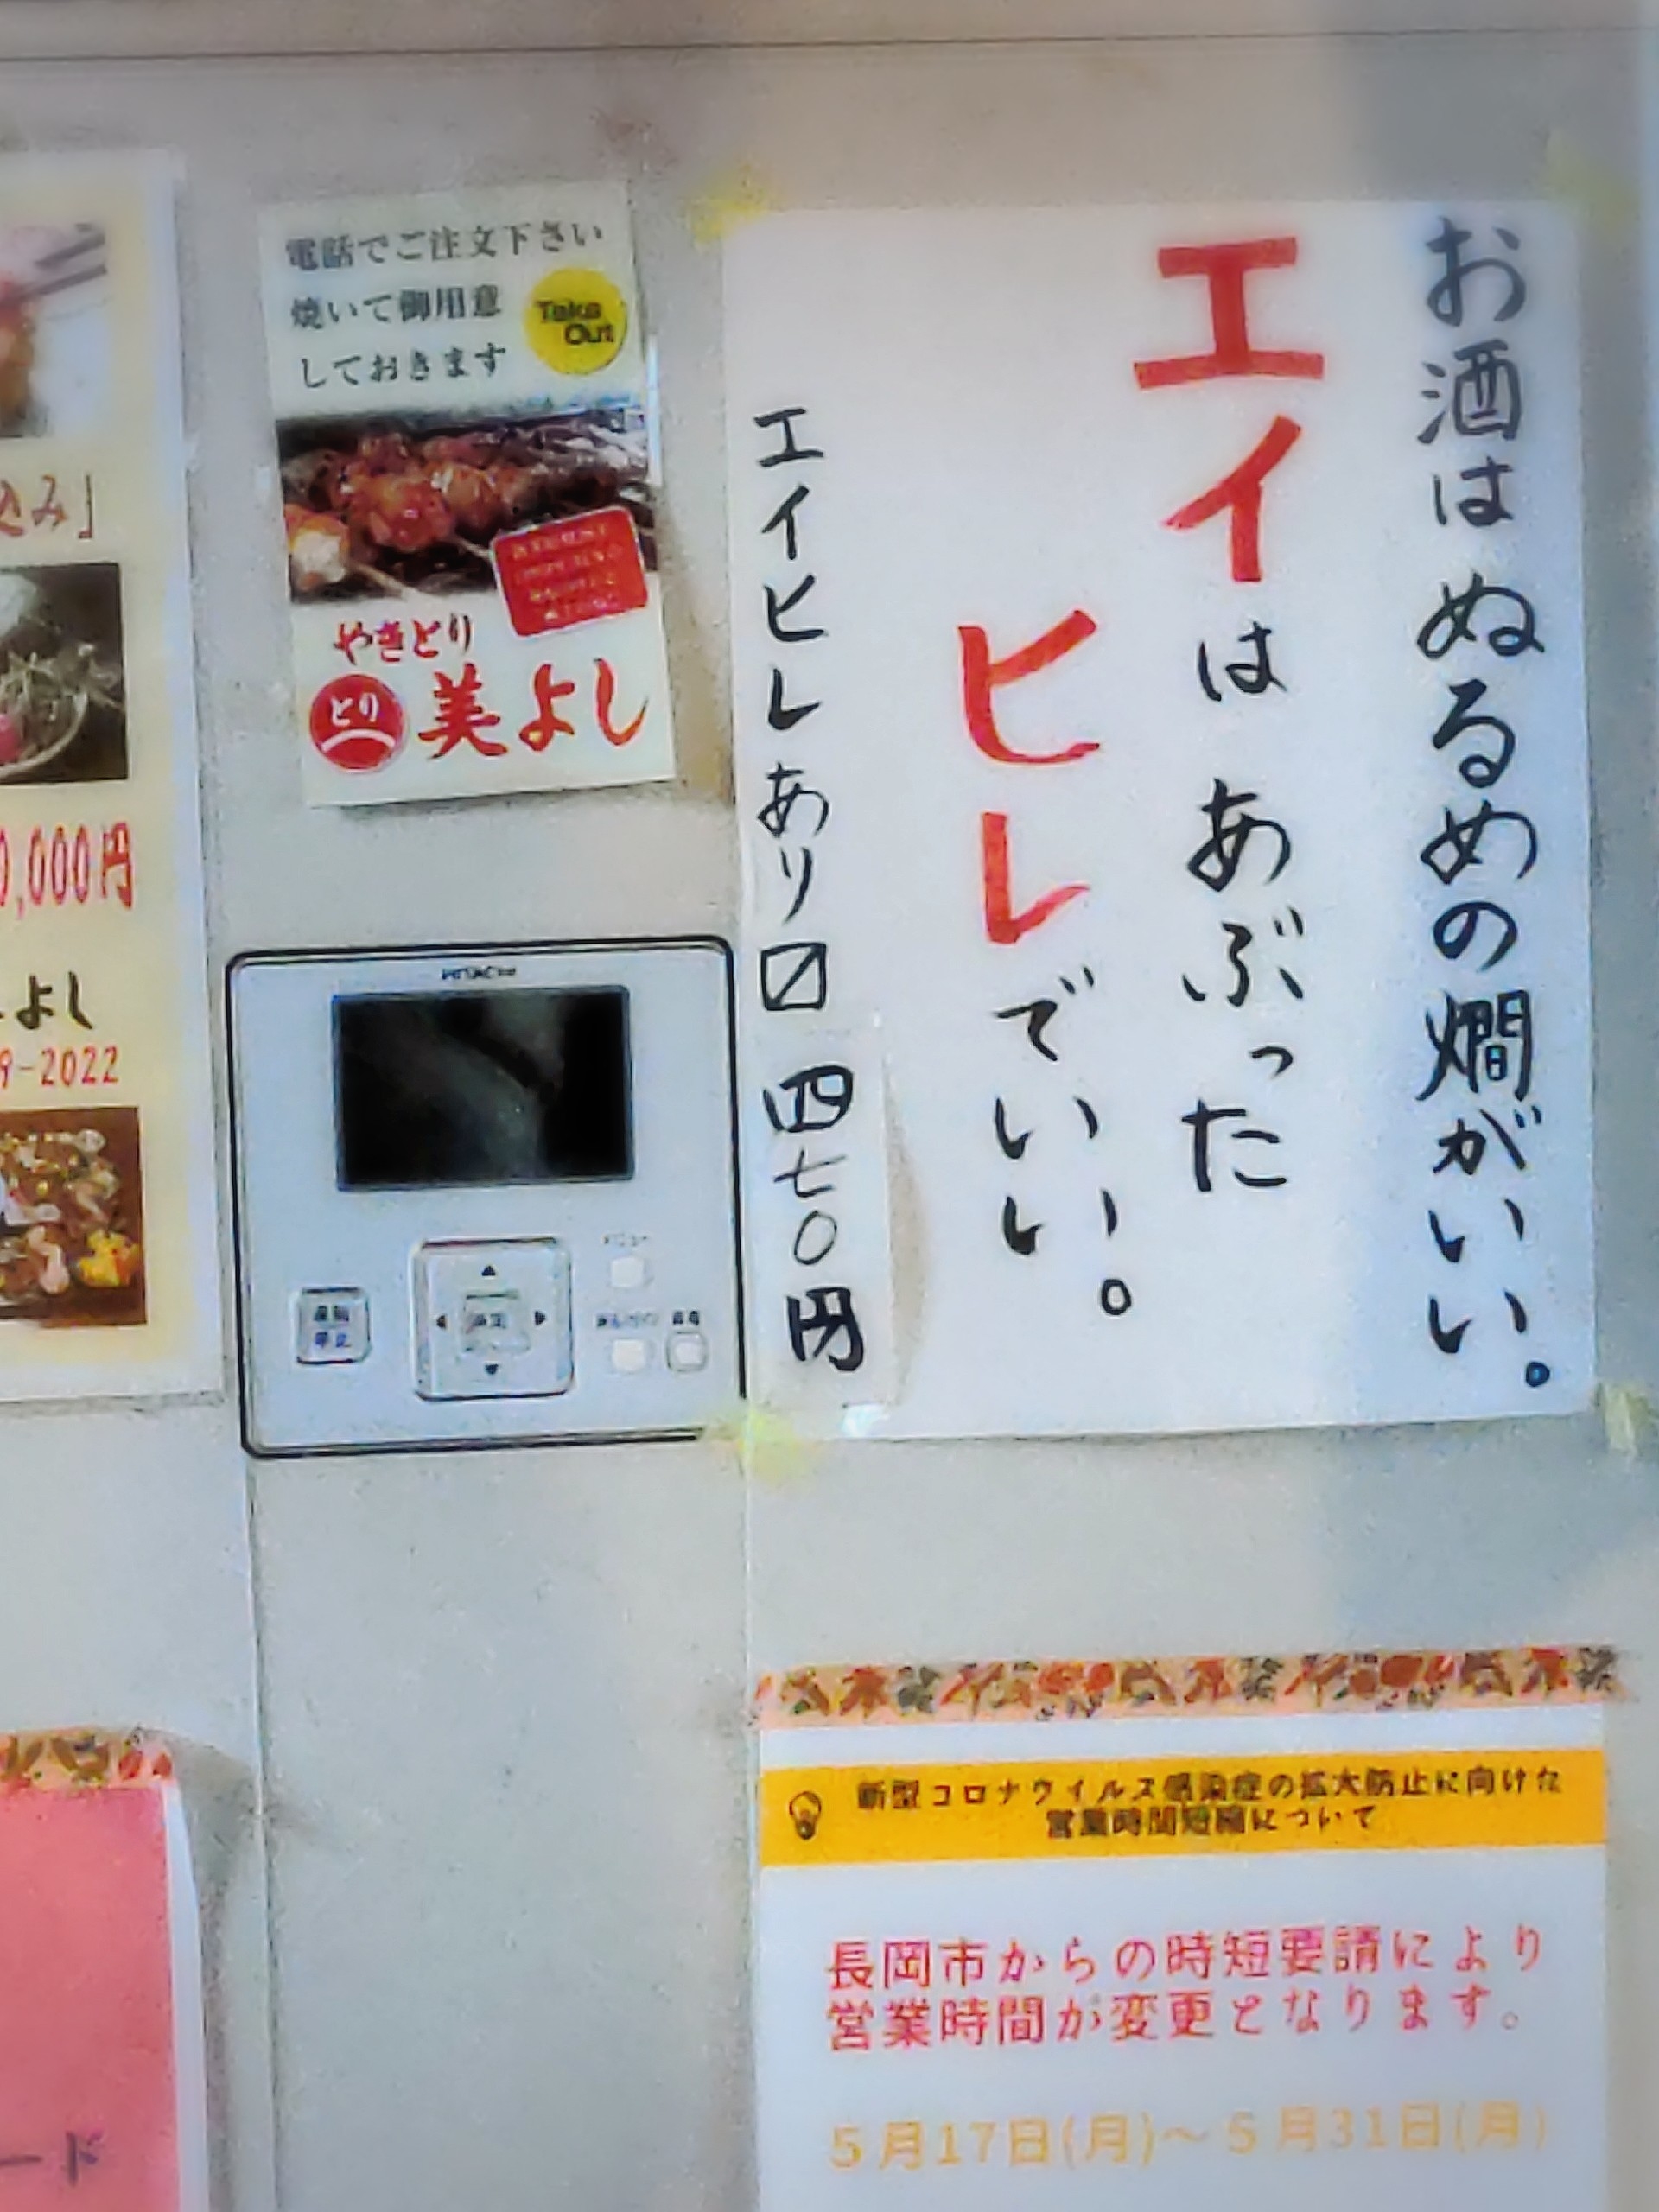 お酒はぬるめの燗がいい。
エイはあぶった
ヒレでいい
い。
エイヒレあり〼 四七〇円
電話でご注文下さい
焼いて御用意
しておきます
Take
Out
やきとり
とり
美よし
込み」
0,000円
よし
9-2022
HITACHI
メニュー
運転
停止
決定
新型コロナウイルス感染症の拡大防止に向けた
営業時間短縮について
長岡市からの時短要請により
営業時間が変更となります。
5月17日(月)～5月31日(月)
ード